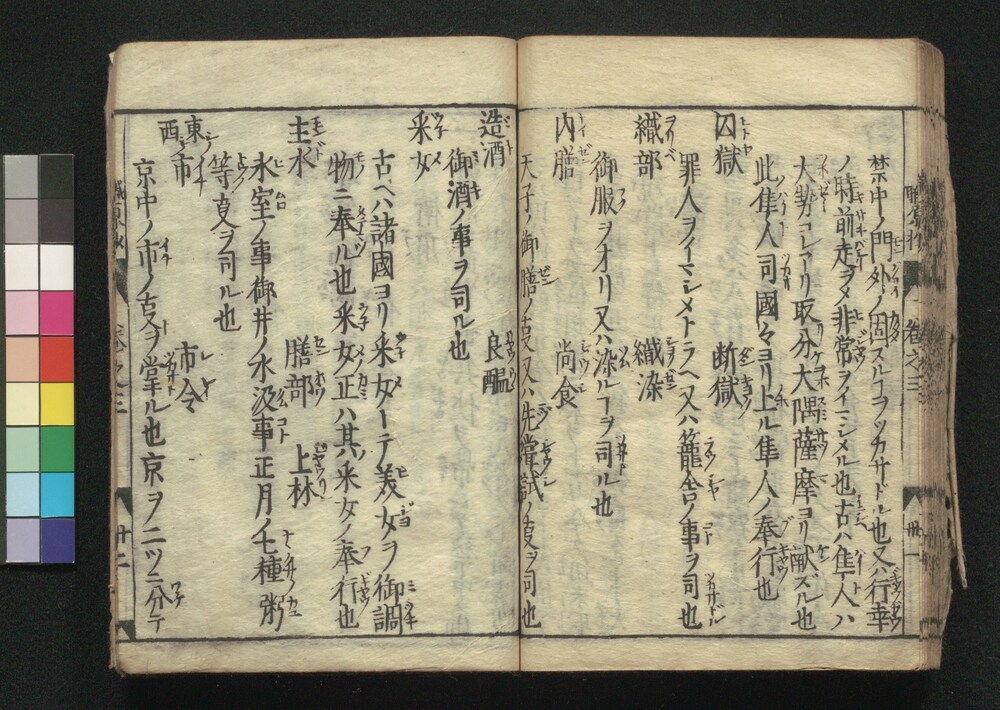 禁中ノ門外ノ固スルコヲツカサドル也又ハ行幸
ノ時前走ヲメ非常ヲイマシメル也古ハ隼人ハ
大勢コレアリ取分大隅薩摩ヨリ献ズル也
此隼人司國々ヨリ上ル隼人ノ奉行也
囚獄 断獄
罪人ヲイマシメトラヘ又ハ籠舎ノ事ヲ司也
織部 織染
御服ヲオリ又ハ染ルコヲ司ル也
内膳 尚食
天子ノ御膳ノ叓又ハ先嘗試ノ叓ヲ司也
造酒 良醞
御酒ノ事ヲ司ル也
采女
古ヘハ諸國ヨリ采女トテ美女ヲ御調
物ニ奉ル也采女正ハ其采女ノ奉行也
主水 膳部 上林
氷室ノ事御井ノ水汲事正月ノ七種粥
等叓ヲ司ル也
東西市 市令
京中ノ市ノ叓ヲ掌ル也京ヲ二ツニ分テ
卷之三
卅一
卅二